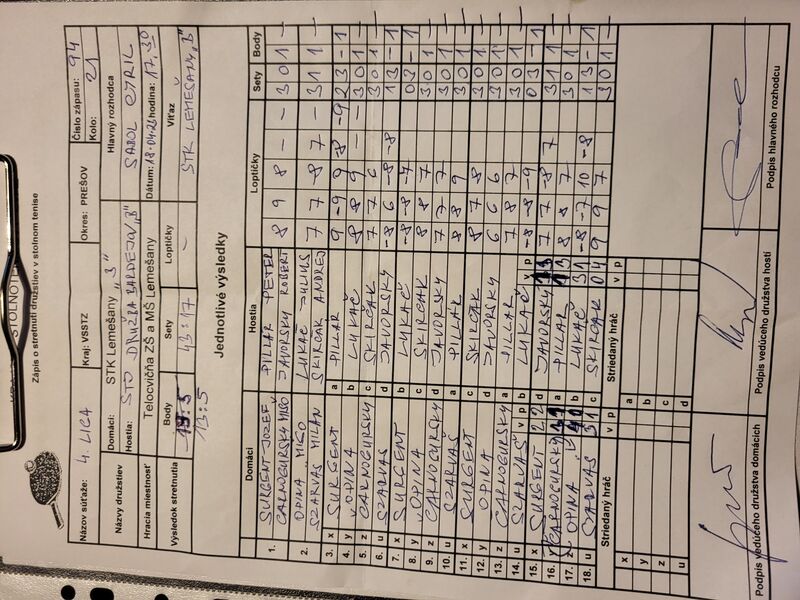 STOLNOTE
Zápis o stretnutí družstiev v stolnom tenise
Názov súťaže: 4. LIGA Kraj: VSSTZ Okres: PREŠOV Číslo zápasu: 94
Kolo: 21
Názvy družstiev Domáci: STK Lemešany "B" Hlavný rozhodca
Hostia: STO DRUŽBA BARDEJOV "B" SABOL CYRIL
Hracia miestnosť Telocvičňa ZŠ a MŠ Lemešany Dátum: hodina: 17,30
Výsledok stretnutia Body Sety Loptičky Víťaz
13:5 43:17 - STK LEMEŠANY "B"
Jednotlivé výsledky
Domáci Hostia Loptičky Sety Body
1. SURGENT JOZEF PILLAR PETER 8 9 8 - - 3 0 1 -
ČARNOGURSKÝ MIŠO JAVORSKÝ ROBERT
2. OPINA MIŠO LUKÁČ JÚLIUS 7 7 -8 7 - 3 1 1 -
SZARVAŠ MILAN SKIRČAK ANDREJ
3. x SURGENT a PILLAR 9 -9 9 -8 -9 2 3 - 1
4. y OPINA b LUKÁČ 8 8 9 3 0 1 -
5. z ČARNOGURSKÝ c SKIRČAK 7 7 6 3 0 1 -
6. u SZARVAŠ d JAVORSKÝ -8 6 -8 -8 1 3 - 1
7. x SURGENT b LUKÁČ -8 -8 -7 0 3 - 1
8. y OPINA c SKIRČAK 8 8 7 3 0 1 -
9. z ČARNOGURSKÝ d JAVORSKÝ 7 7 7 3 0 1 -
10. u SZARVAŠ a PILLAR 8 8 9 3 0 1 -
11. x SURGENT c SKIRČAK 3 0 1 -
12. y OPINA d JAVORSKÝ 8 7 8 3 0 1 -
13. z ČARNOGURSKÝ a PILLAR 6 6 6 3 0 1 -
14. u SZARVAŠ b LUKÁČ 7 8 7 3 0 1 -
v p v p
15. x SURGENT 2 2 d JAVORSKÝ -8 -8 -9 0 3 - 1
16. ČARNOGURSKÝ a PILLAR 7 7 -8 7 3 1 1 -
17. OPINA b LUKÁČ 3 1 8 8 7 3 0 1 -
18. u SZARVAŠ 3 1 c SKIRČAK 0 4 -8 -7 10 -8 1 3 - 1
9 9 7 3 0 1 -
Striedaný hráč v p Striedaný hráč v p
x a
y b
z c
u d
Podpis vedúceho družstva domácich Podpis vedúceho družstva hostí Podpis hlavného rozhodcu